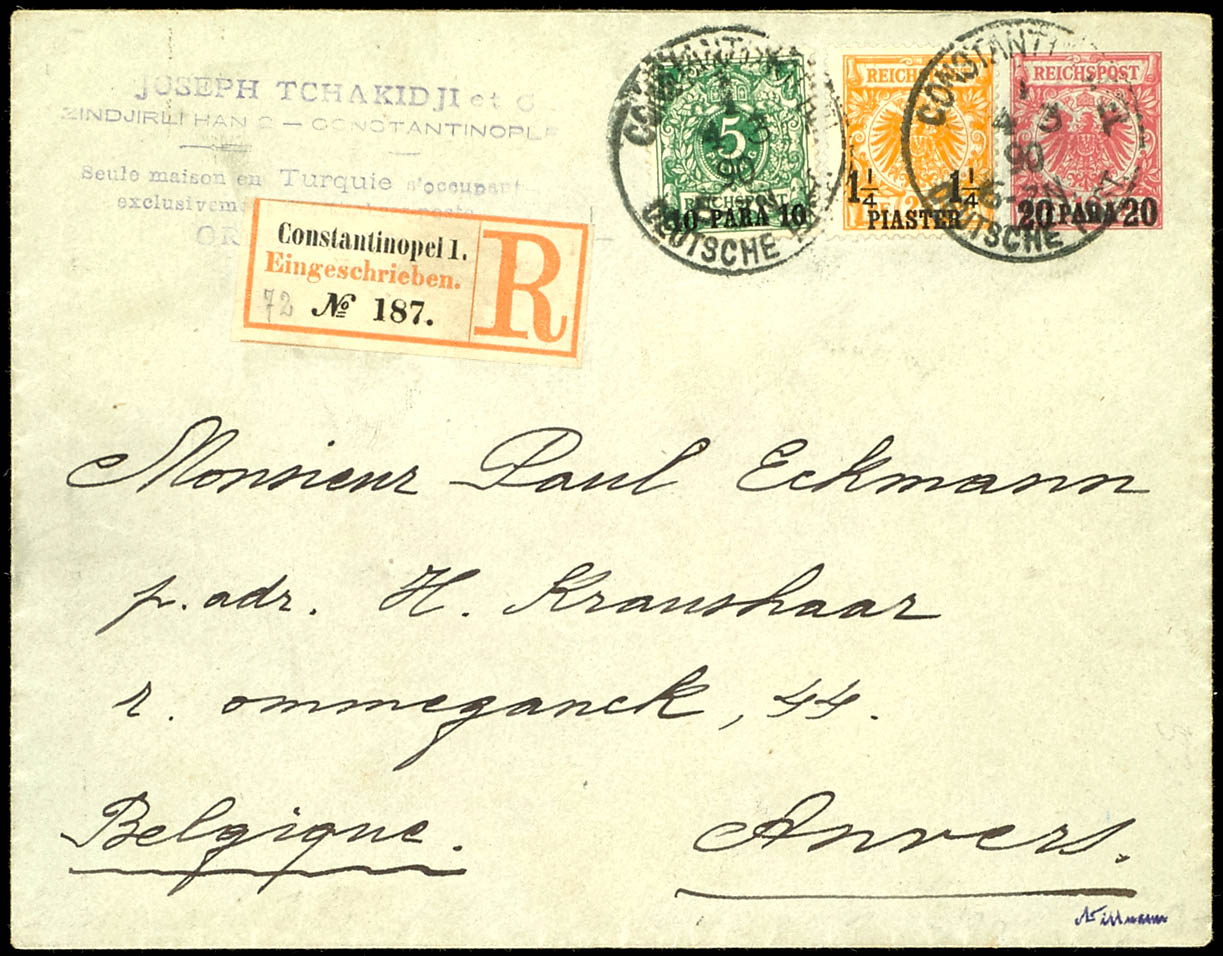 JOSEPH TCHAKIDJI et C
ZINDJIRLI HAN — CONSTANTINOPLE
Seule maison en Turquie s'occupant
exclusiveme
OR
Constantinopel 1.
Eingeschrieben.
72 № 187.
R
5
REICHSPOST
10 PARA 10
CONSTANTINOPEL
1
4 3
90
DEUTSCHE
REICHSPOST
1¼ 1¼
PIASTER
REICHSPOST
20 PARA 20
CONSTANTI
1
4 3
90
6-7N
DEUTSCHE
Monsieur Paul Eckmann
p. adr. H. Kraushaar
r. ommeganck, 44.
Belgique. Anvers.